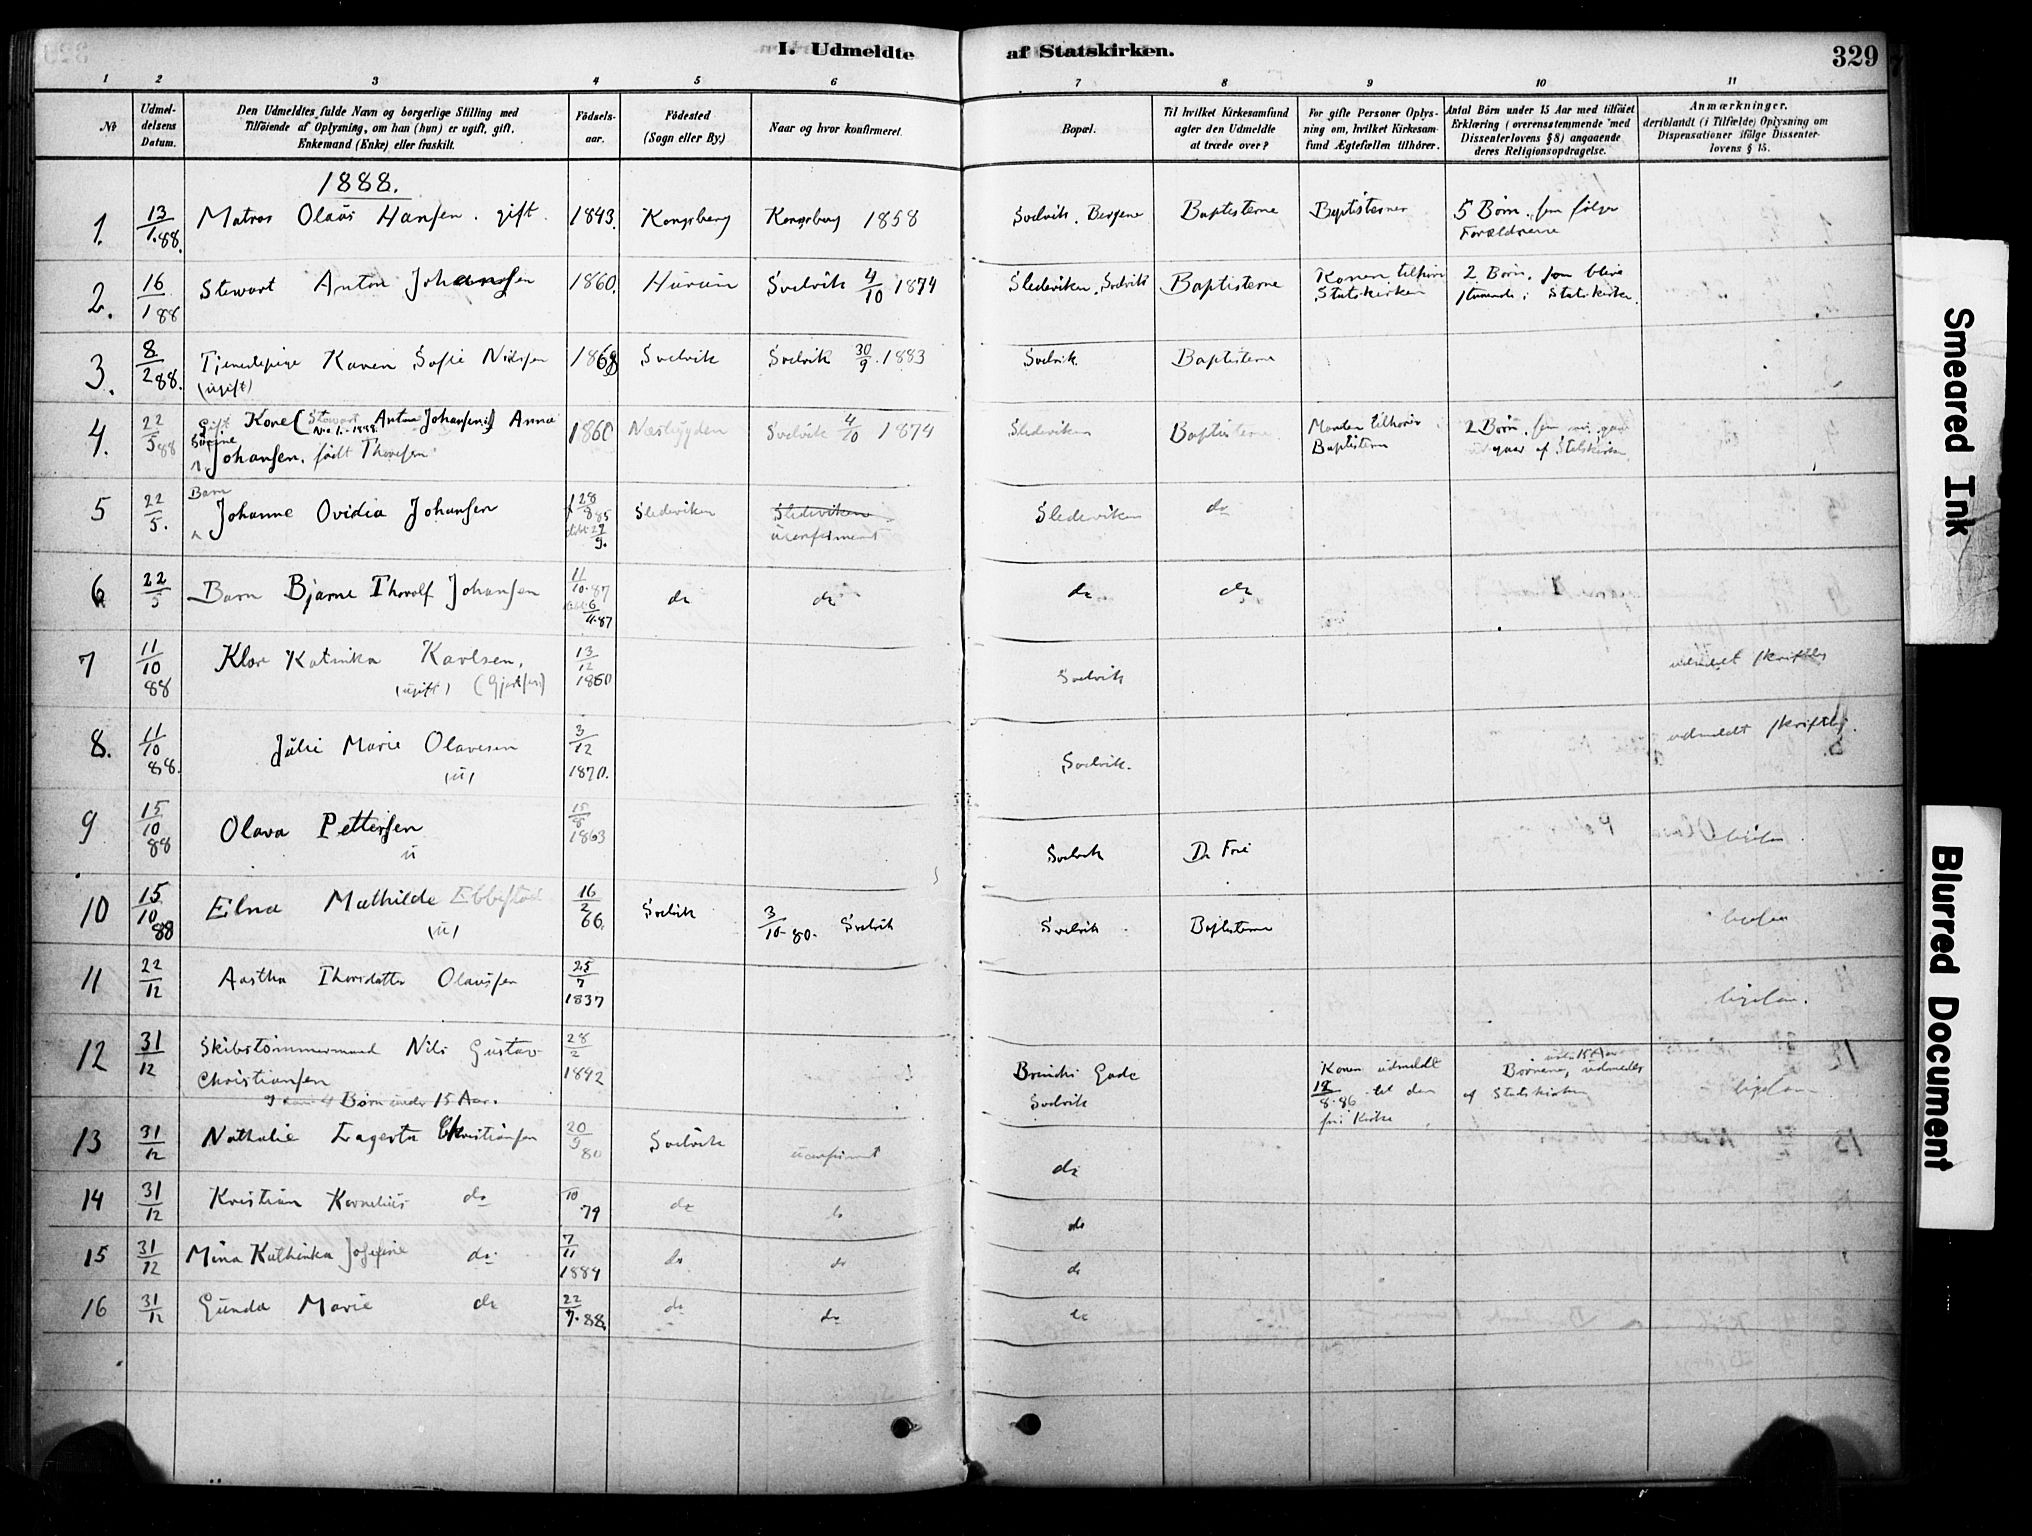 I. Udmeldte af Statskirken.
329
1 2 3 4 5 6 7 8 9 10 11
No
Udmeldelsens Datum.
Den Udmeldtes fulde Navn og borgerlige Stilling med
Tilföiende af Oplysning, om han (hun) er ugift, gift,
Enkemand (Enke) eller fraskilt.
Födsels-
aar.
Födested
(Sogn eller By.)
Naar og hvor konfirmeret.
Bopæl.
Til hvilket Kirkesamfund
agter den Udmeldte
at træde over?
For gifte Personer Oplys-
ning om, hvilket Kirkesam-
fund Ægtefællen tilhörer.
Antal Börn under 15 Aar med tilföiet
Erklæring (overensstemmende med
Dissenterlovens § 8) angaaende
deres Religionsopdragelse.
Anmærkninger,
deriblandt (i Tilfælde) Oplysning om
Dispensationer ifölge Dissenter-
lovens § 15.
1888.
1. 13/1.88. Matros Olaus Hansen. gift. 1843. Kongsberg Kongsberg 1858 Svelvik. Bergene Baptisterne Baptisterne 5 Børn. som følger
Forældrene
2. 16/1 88 Stewart Anton Johansen 1860. Hurum Svelvik 4/10 1874 Slederviken, Svelvik Baptisterne Konen tilhører 2 Børn, som blive
Statskirken Statskirken.
3. 8/2 88. Tjenestepige Karen Sofie Nielsen 1868 Svelvik Svelvik 30/9. 1883 Svelvik Baptisterne
(ugift)
4. 22/5 88 Gift Kone (Stewart Anton Johansens) Anna 1860 Næsbygden Svelvik 4/10 1874 Slederviken Baptisterne Manden tilhører 2 Børn, som
No 1. 1888
Sørine
Johansen. født Thoresen. Baptisterne af Statskirken
5 22/5. Barn
Johanne Ovidia Johansen 28/8 85 Slederviken Slederviken Slederviken do
29/9. uconfirmeret
6 22/5 Barn Bjarne Thorolf Johansen 11/10.87 do do do do
7 11/10 88 Klara Katinka Karlsen, 13/12 1860 Svelvik udmeldt skriftlig
(ugift)
8. 11/10 88. Julie Marie Olavesen 3/12 1870. Svelvik. udmeldt skriftlig.
(u)
9 15/10 88 Olava Pettersen 15/8 1863 Svelvik De Frie ligesaa
u
10 15/10 88 Elna Mathilde Ebbestad 16/2 66. Svelvik 3/10-80. Svelvik Svelvik Baptisterne ligesaa
(u)
11 22/12 Aastha Thorsdatter Olausen 25/7 1837 ligesaa.
12 31/12 Skibstømmermand Nils Gustav 28/2 1842 Gade Konen udmeldt under 15 Aar
Christiansen Svelvik 12/8.86 til den Børnene, udmeldes ligesaa
4 Børn under 15 Aar. fri Kirke af Statskirken
13 31/12 Nathalie Lagerta Christiansen 20/9 80 Svelvik uconfirmeret do
14 31/12 Kristian Kornelius do 10 79 do do do
15 31/12 Mina Kathinka Josefine do 7/11 1884 do do do
16 31/12 Gunda Marie do 22/7.88. do do do
Smeared Ink
Blurred Document